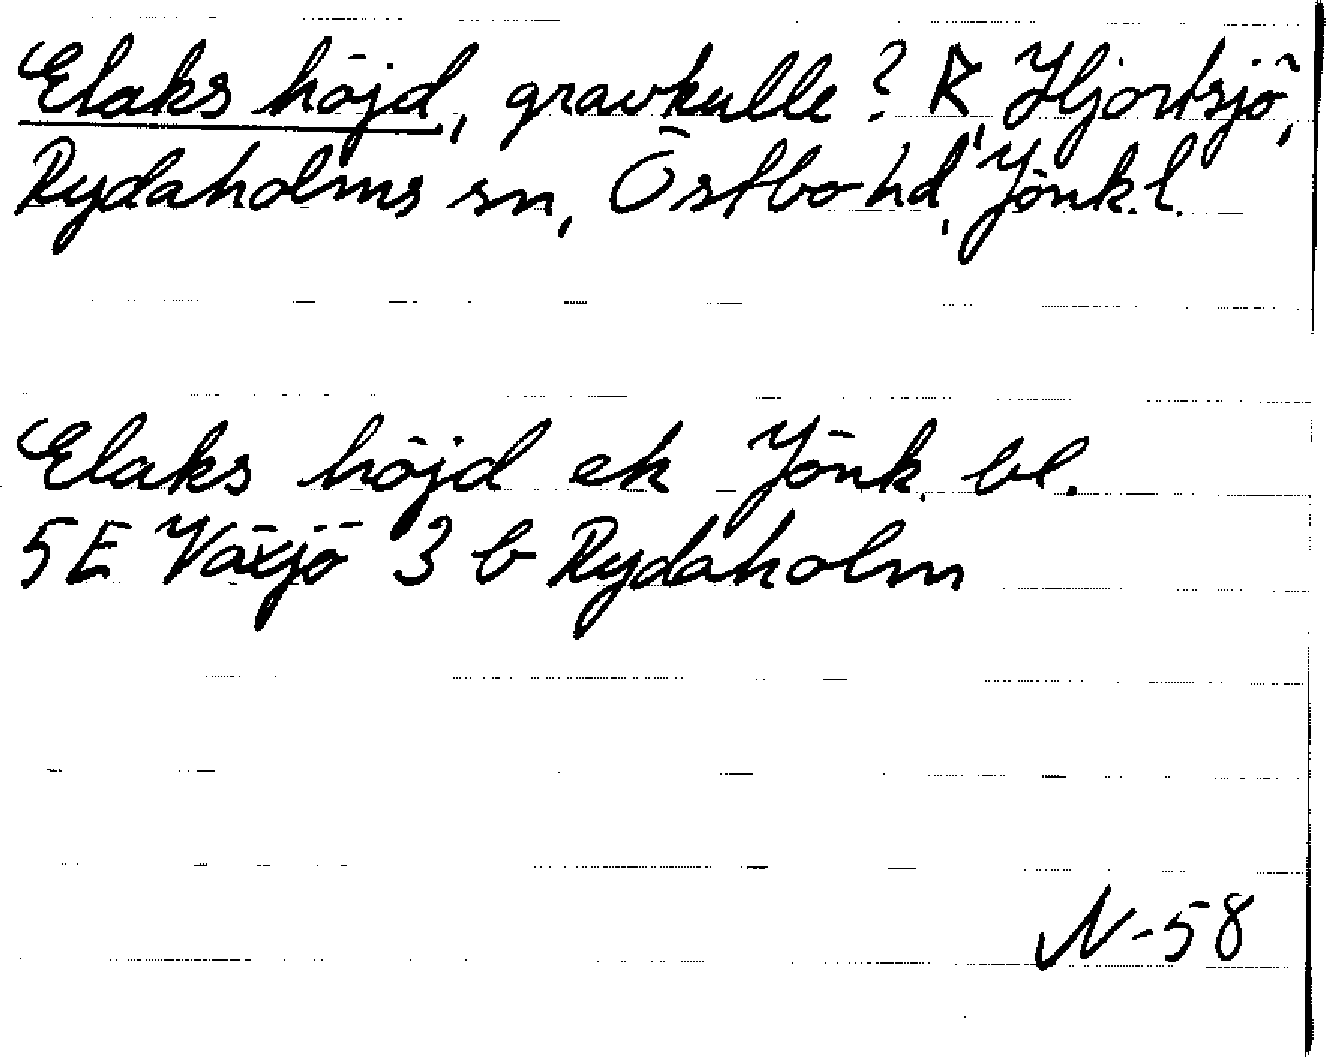 Elaks höjd, gravkulle? R, Hjortsjö,
Rydaholms sn, Östbo hd, Jönk.l.
Elaks höjd ek Jönk. bl.
5E Växjö 3 b Rydaholm
N-58